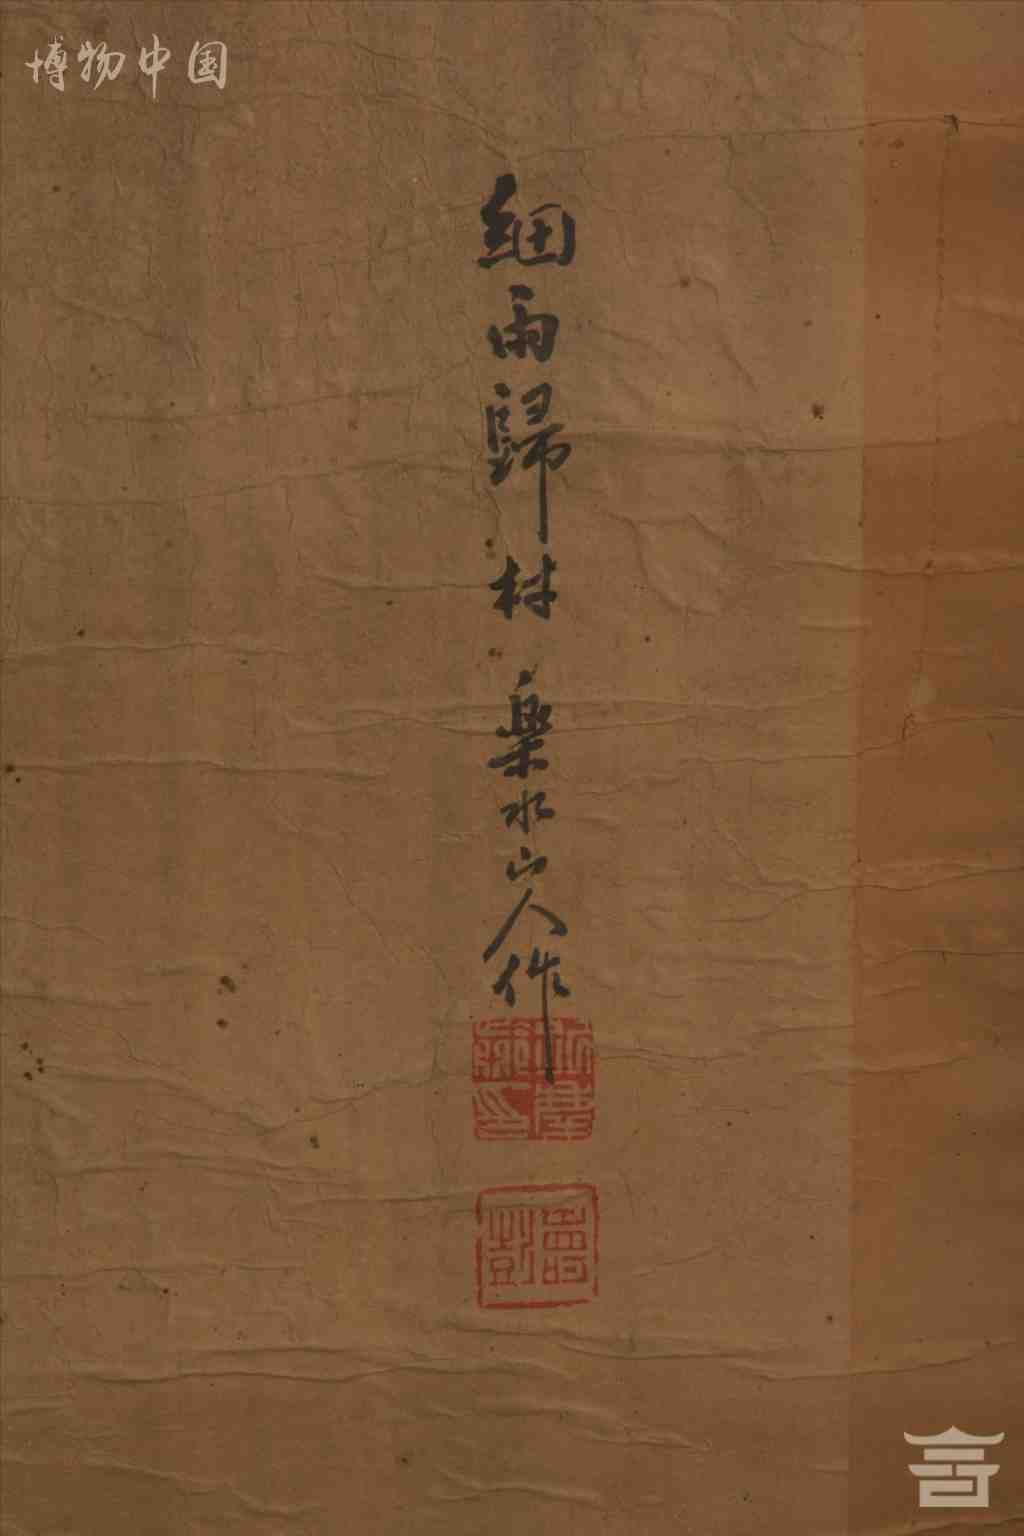 博物中国
細雨歸村 樂水山人作